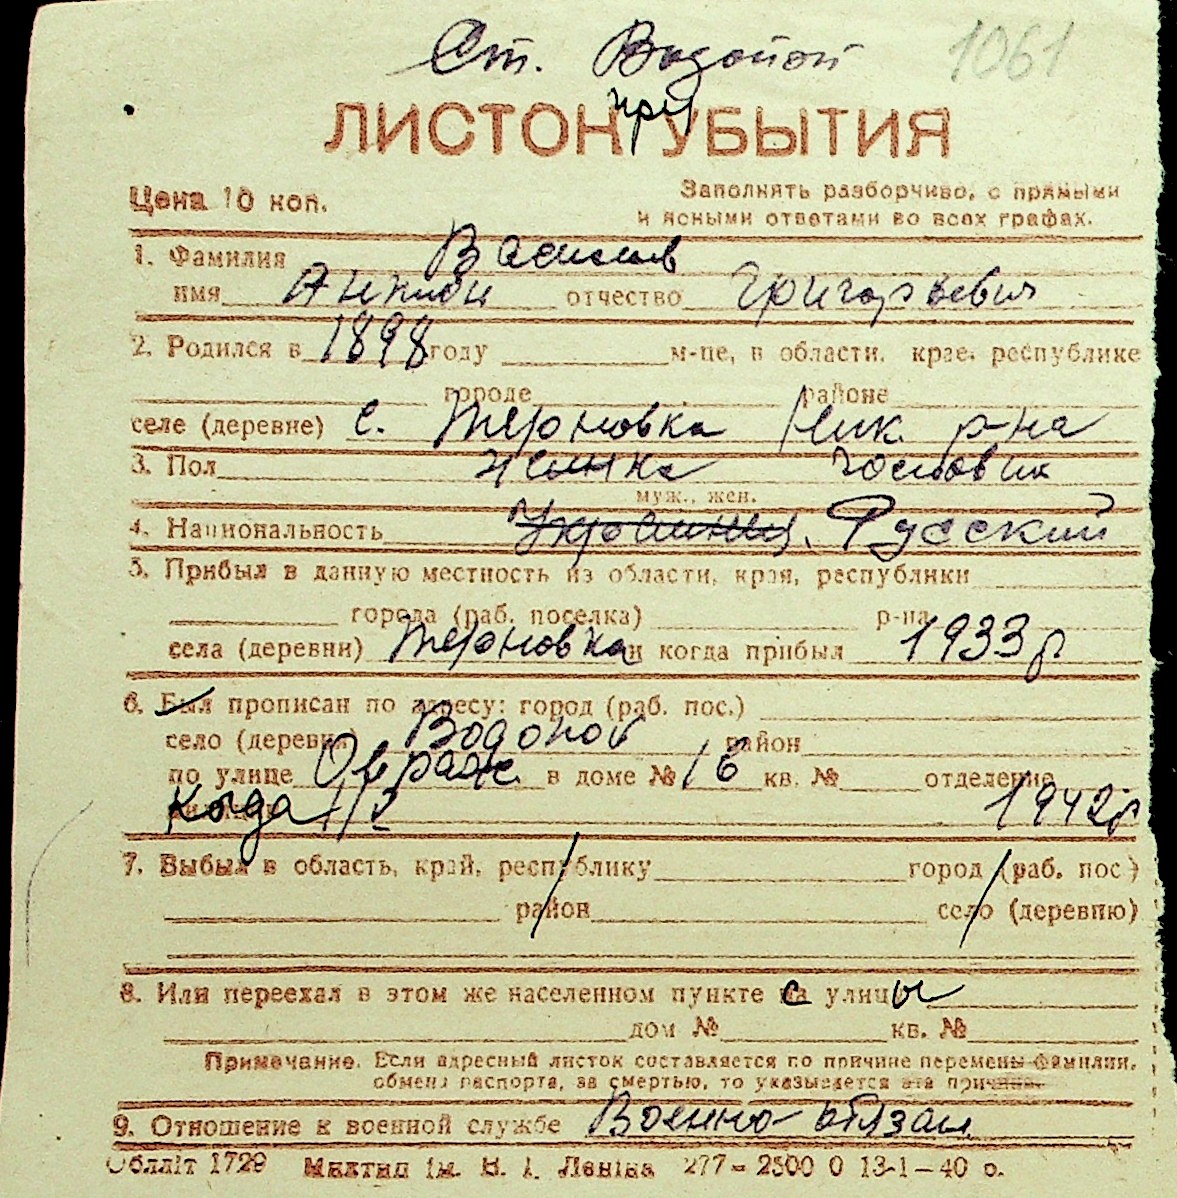 Ст. Водопой 1061
ЛИСТОК при УБЫТИЯ
Цена 10 коп.
Заполнять разборчиво, с прямыми
и ясными ответами во всех графах.
1. Фамилия Василев
имя отчество Григорьевич
2. Родился в 1898 году м-це, в области, крае, республике
городе районе
селе (деревне) с. Терновка Ник. р-на
3. Пол
муж., жен.
4. Национальность Украинец. Русский
5. Прибыл в данную местность из области, края, республики
города (раб. поселка) р-на
села (деревни) Терновка и когда прибыл 1933 р
6. Был прописан по адресу: город (раб. пос.)
село (деревня) Водопой район
по улице Овраж в доме № 16 кв. № отделение
когда 1/2 1942 р
7. Выбыл в область, край, республику город (раб. пос)
район село (деревню)
8. Или переехал в этом же населенном пункте с улицы
дом № кв. №
Примечание. Если адресный листок составляется по причине перемены фамилии,
обмена паспорта, за смертью, то указывается эта причина.
9. Отношение к военной службе Военно обязан
Обпліт 1729 ім. В. І. Леніна 277 - 2500 0 13-1-40 р.